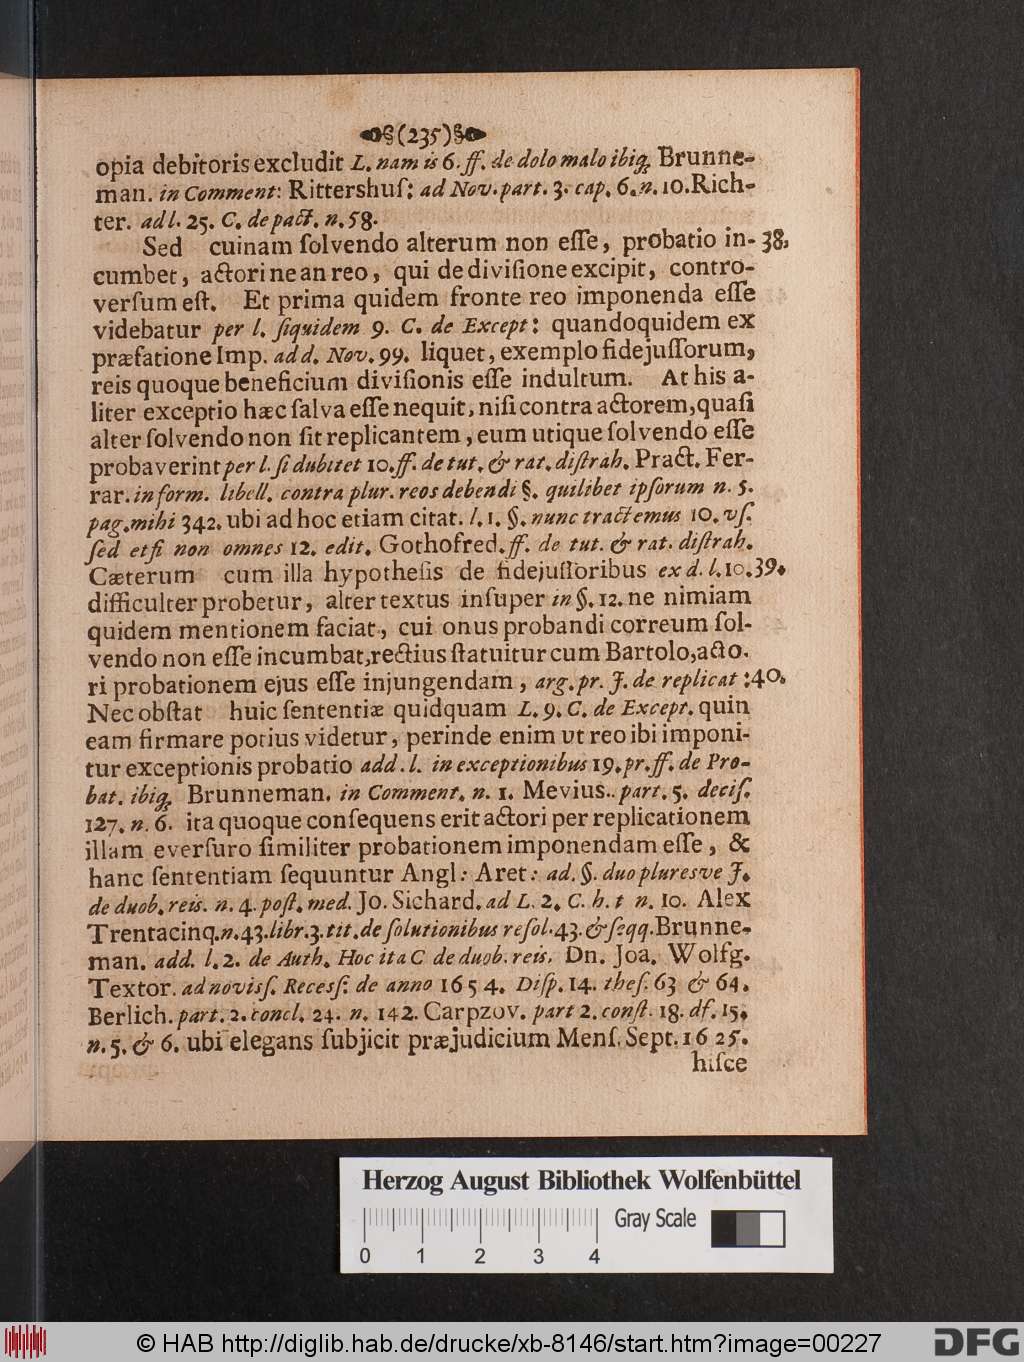 §(235)§
opia debitoris excludit L. nam is 6. ff. de dolo malo ibiq; Brunne-
man. in Comment: Rittershuſ: ad Nov. part. 3. cap. 6. n. 10. Rich-
ter. ad l. 25. C. de pact. n. 58.
Sed cuinam ſolvendo alterum non eſſe, probatio in- 38.
cumbet, actori ne an reo, qui de diviſione excipit, contro-
verſum eſt. Et prima quidem fronte reo imponenda eſſe
videbatur per l. ſiquidem 9. C. de Except: quandoquidem ex
præfatione Imp. ad d. Nov. 99. liquet, exemplo fidejuſſorum,
reis quoque beneficium diviſionis eſſe indultum. At his a-
liter exceptio hæc ſalva eſſe nequit, niſi contra actorem, quaſi
alter ſolvendo non ſit replicantem, eum utique ſolvendo eſſe
probaverint per l. ſi dubitet 10. ff. de tut. & rat. diſtrah. Pract. Fer-
rar. in form. libell. contra plur. reos debendi §. quilibet ipſorum n. 5.
pag. mihi 342. ubi ad hoc etiam citat. l. 1. §. nunc tractemus 10. vſ.
ſed etſi non omnes 12. edit. Gothofred. ff. de tut. & rat. diſtrah.
Cæterum cum illa hypotheſis de fidejuſſoribus ex d. l. 10. 39.
difficulter probetur, alter textus inſuper in §. 12. ne nimiam
quidem mentionem faciat, cui onus probandi correum ſol-
vendo non eſſe incumbat, rectius ſtatuitur cum Bartolo, acto.
ri probationem ejus eſſe injungendam, arg. pr. J. de replicat: 40.
Nec obſtat huic ſententiæ quidquam L. 9. C. de Except. quin
eam firmare potius videtur, perinde enim ut reo ibi imponi-
tur exceptionis probatio add. l. in exceptionibus 19. pr. ff. de Pro-
bat. ibiq; Brunneman. in Comment. n. 1. Mevius.. part. 5. deciſ.
127. n. 6. ita quoque conſequens erit actori per replicationem
illam everſuro ſimiliter probationem imponendam eſſe, &
hanc ſententiam ſequuntur Angl: Aret: ad. §. duo plureſve J.
de duob. reis. n. 4. poſt. med. Jo. Sichard. ad L. 2. C. h. t n. 10. Alex
Trentacinq. n. 43. libr. 3. tit. de ſolutionibus reſol. 43. & ſeqq. Brunne-
man. add. l. 2. de Auth. Hoc ita C de duob. reis. Dn. Joa. Wolfg.
Textor. ad noviſſ. Receſſ: de anno 1654. Diſp. 14. theſ. 63 & 64.
Berlich. part. 2. concl. 24. n. 142. Carpzov. part 2. conſt. 18. df. 15.
n. 5. & 6. ubi elegans ſubjicit præjudicium Menſ. Sept. 1625.
hiſce
Herzog August Bibliothek Wolfenbüttel
0 1 2 3 4
Gray Scale
© HAB http://diglib.hab.de/drucke/xb-8146/start.htm?image=00227
DFG